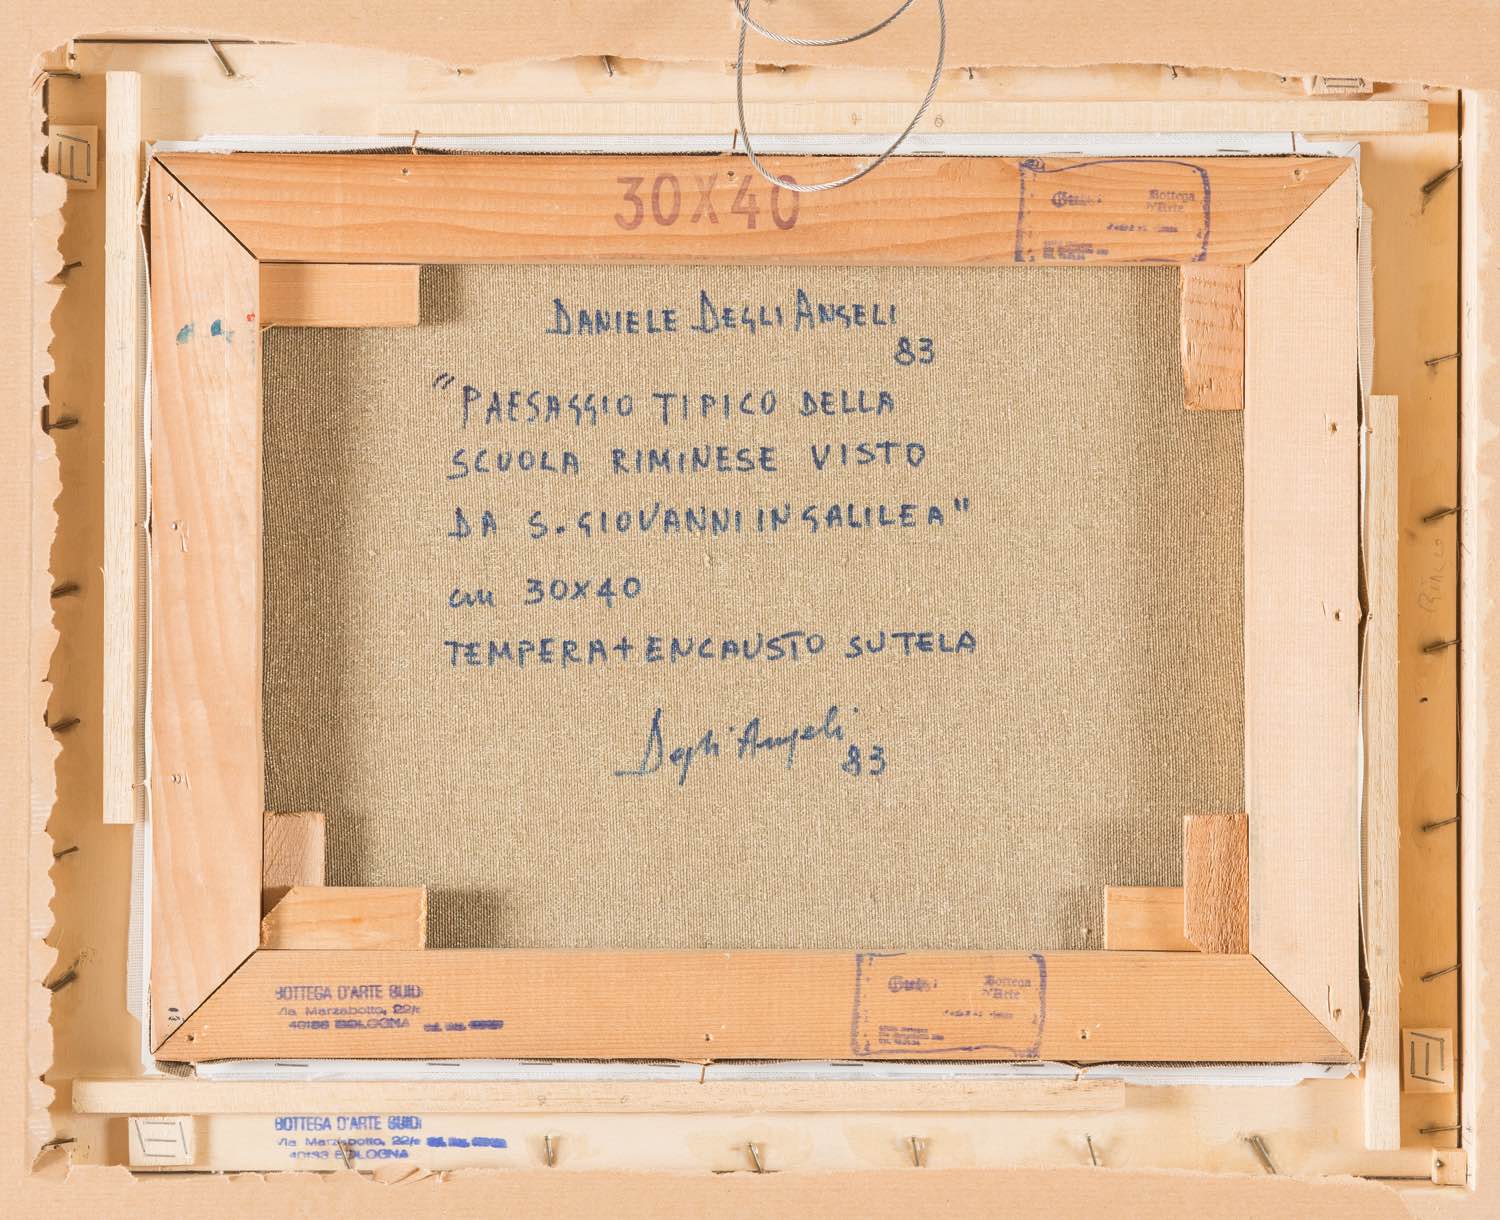 30X40
Bottega
d'Arte
DANIELE DEGLI ANGELI
83
"PAESAGGIO TIPICO DELLA
SCUOLA RIMINESE VISTO
DA S. GIOVANNI IN GALILEA"
cm 30x40
TEMPERA+ENCAUSTO SU TELA
Degli Angeli
83
BOTTEGA D'ARTE GUIDI
Via Marzabotto, 22/e
BOLOGNA
Bottega
d'Arte
BOTTEGA D'ARTE GUIDI
Via Marzabotto, 22/e
40133 BOLOGNA